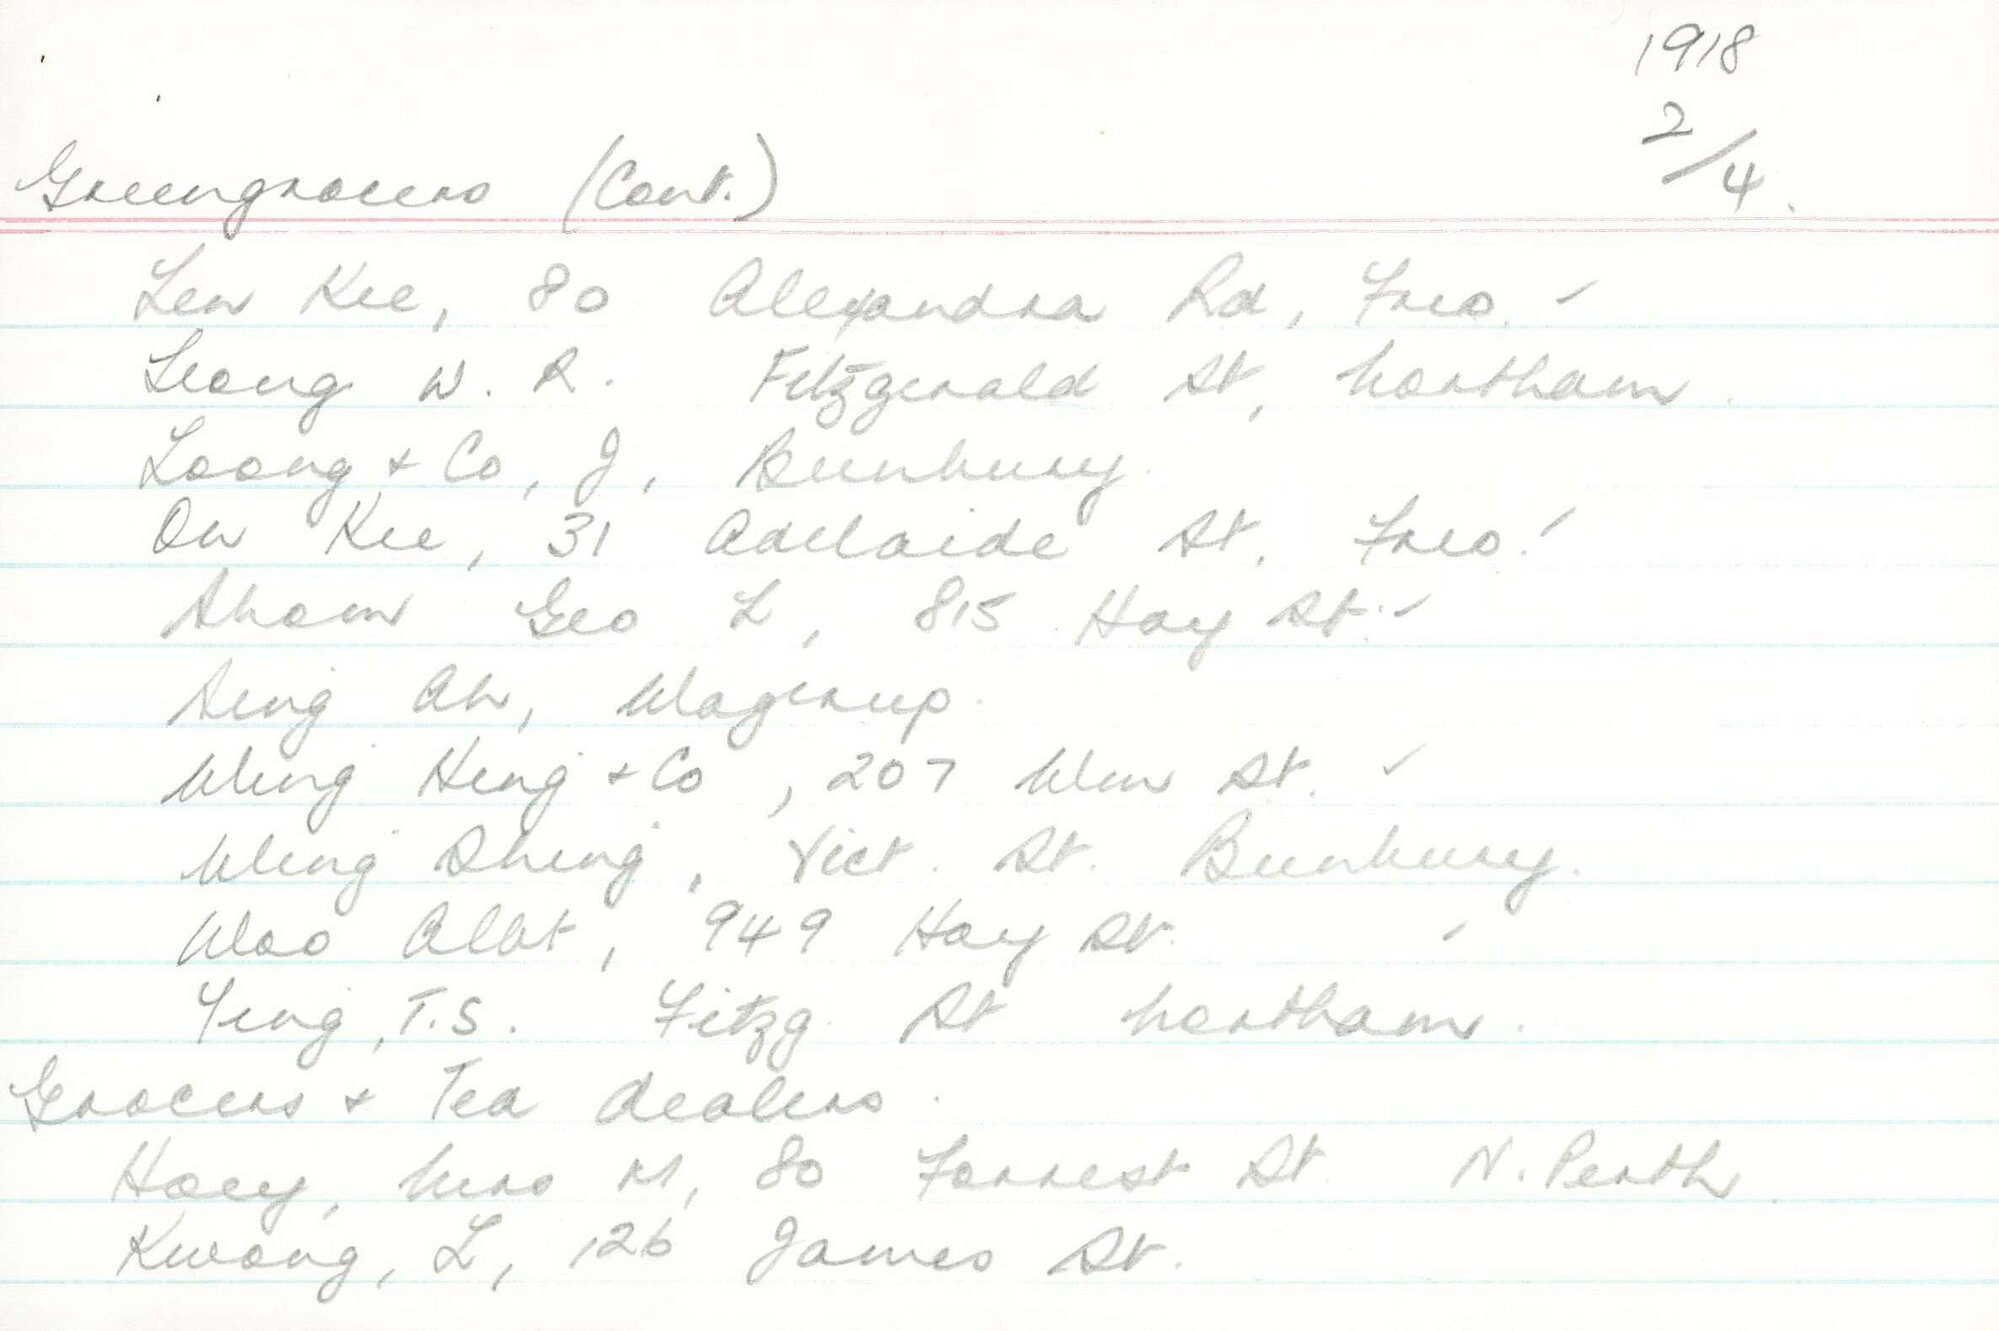 1918
2/4.
Greengrocers (Cont.)
Lew Kee, 80 Alexandra Rd, Freo.
Leong W. R. Fitzgerald St, Northam.
Loong + Co, J, Bunbury.
On Kee, 31 Adelaide St, Freo.
Sham Geo L, 815 Hay St.
Sing Ah, Wagerup.
Wing Hing + Co, 207 Wm St.
Wing Shing, Vict. St. Bunbury.
Woo Albt, 949 Hay St.
Ying, T.S. Fitzg. St Northam.
Grocers + Tea dealers.
Hoey, Mrs M, 80 Forrest St. N. Perth
Kwong, L, 126 James St.